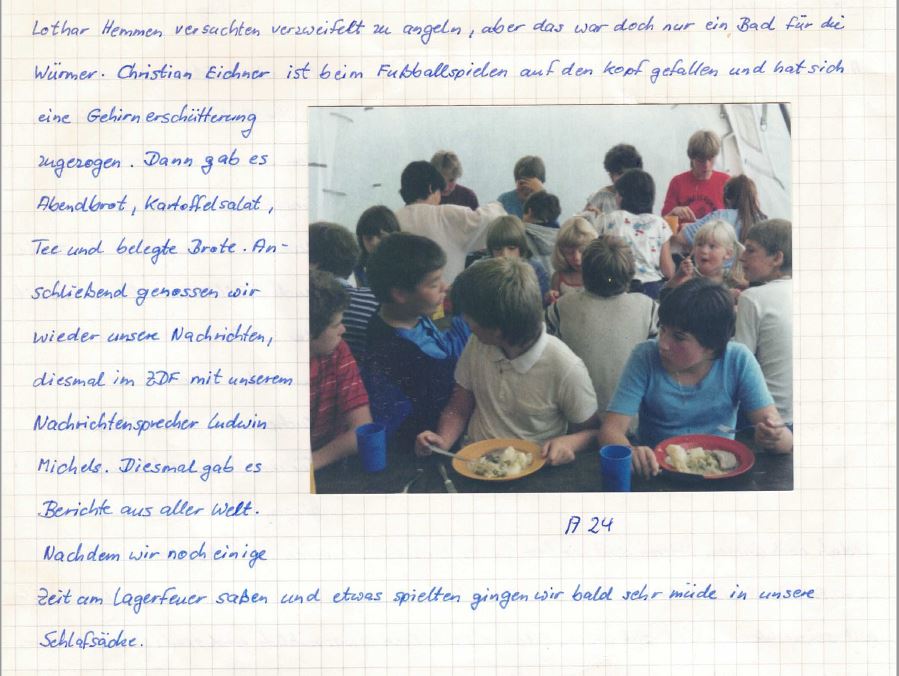 Lothar Hemmen versuchten verzweifelt zu angeln, aber das war doch nur ein Bad für die
Würmer. Christian Eichner ist beim Fußballspielen auf den Kopf gefallen und hat sich
eine Gehirnerschütterung
zugezogen. Dann gab es
Abendbrot, Kartoffelsalat,
Tee und belegte Brote. An-
schließend genossen wir
wieder unsere Nachrichten,
diesmal im ZDF mit unserem
Nachrichtensprecher Ludwin
Michels. Diesmal gab es
Berichte aus aller Welt.
Nachdem wir noch einige
Zeit am Lagerfeuer saßen und etwas spielten gingen wir bald sehr müde in unsere
Schlafsäcke.
A 24